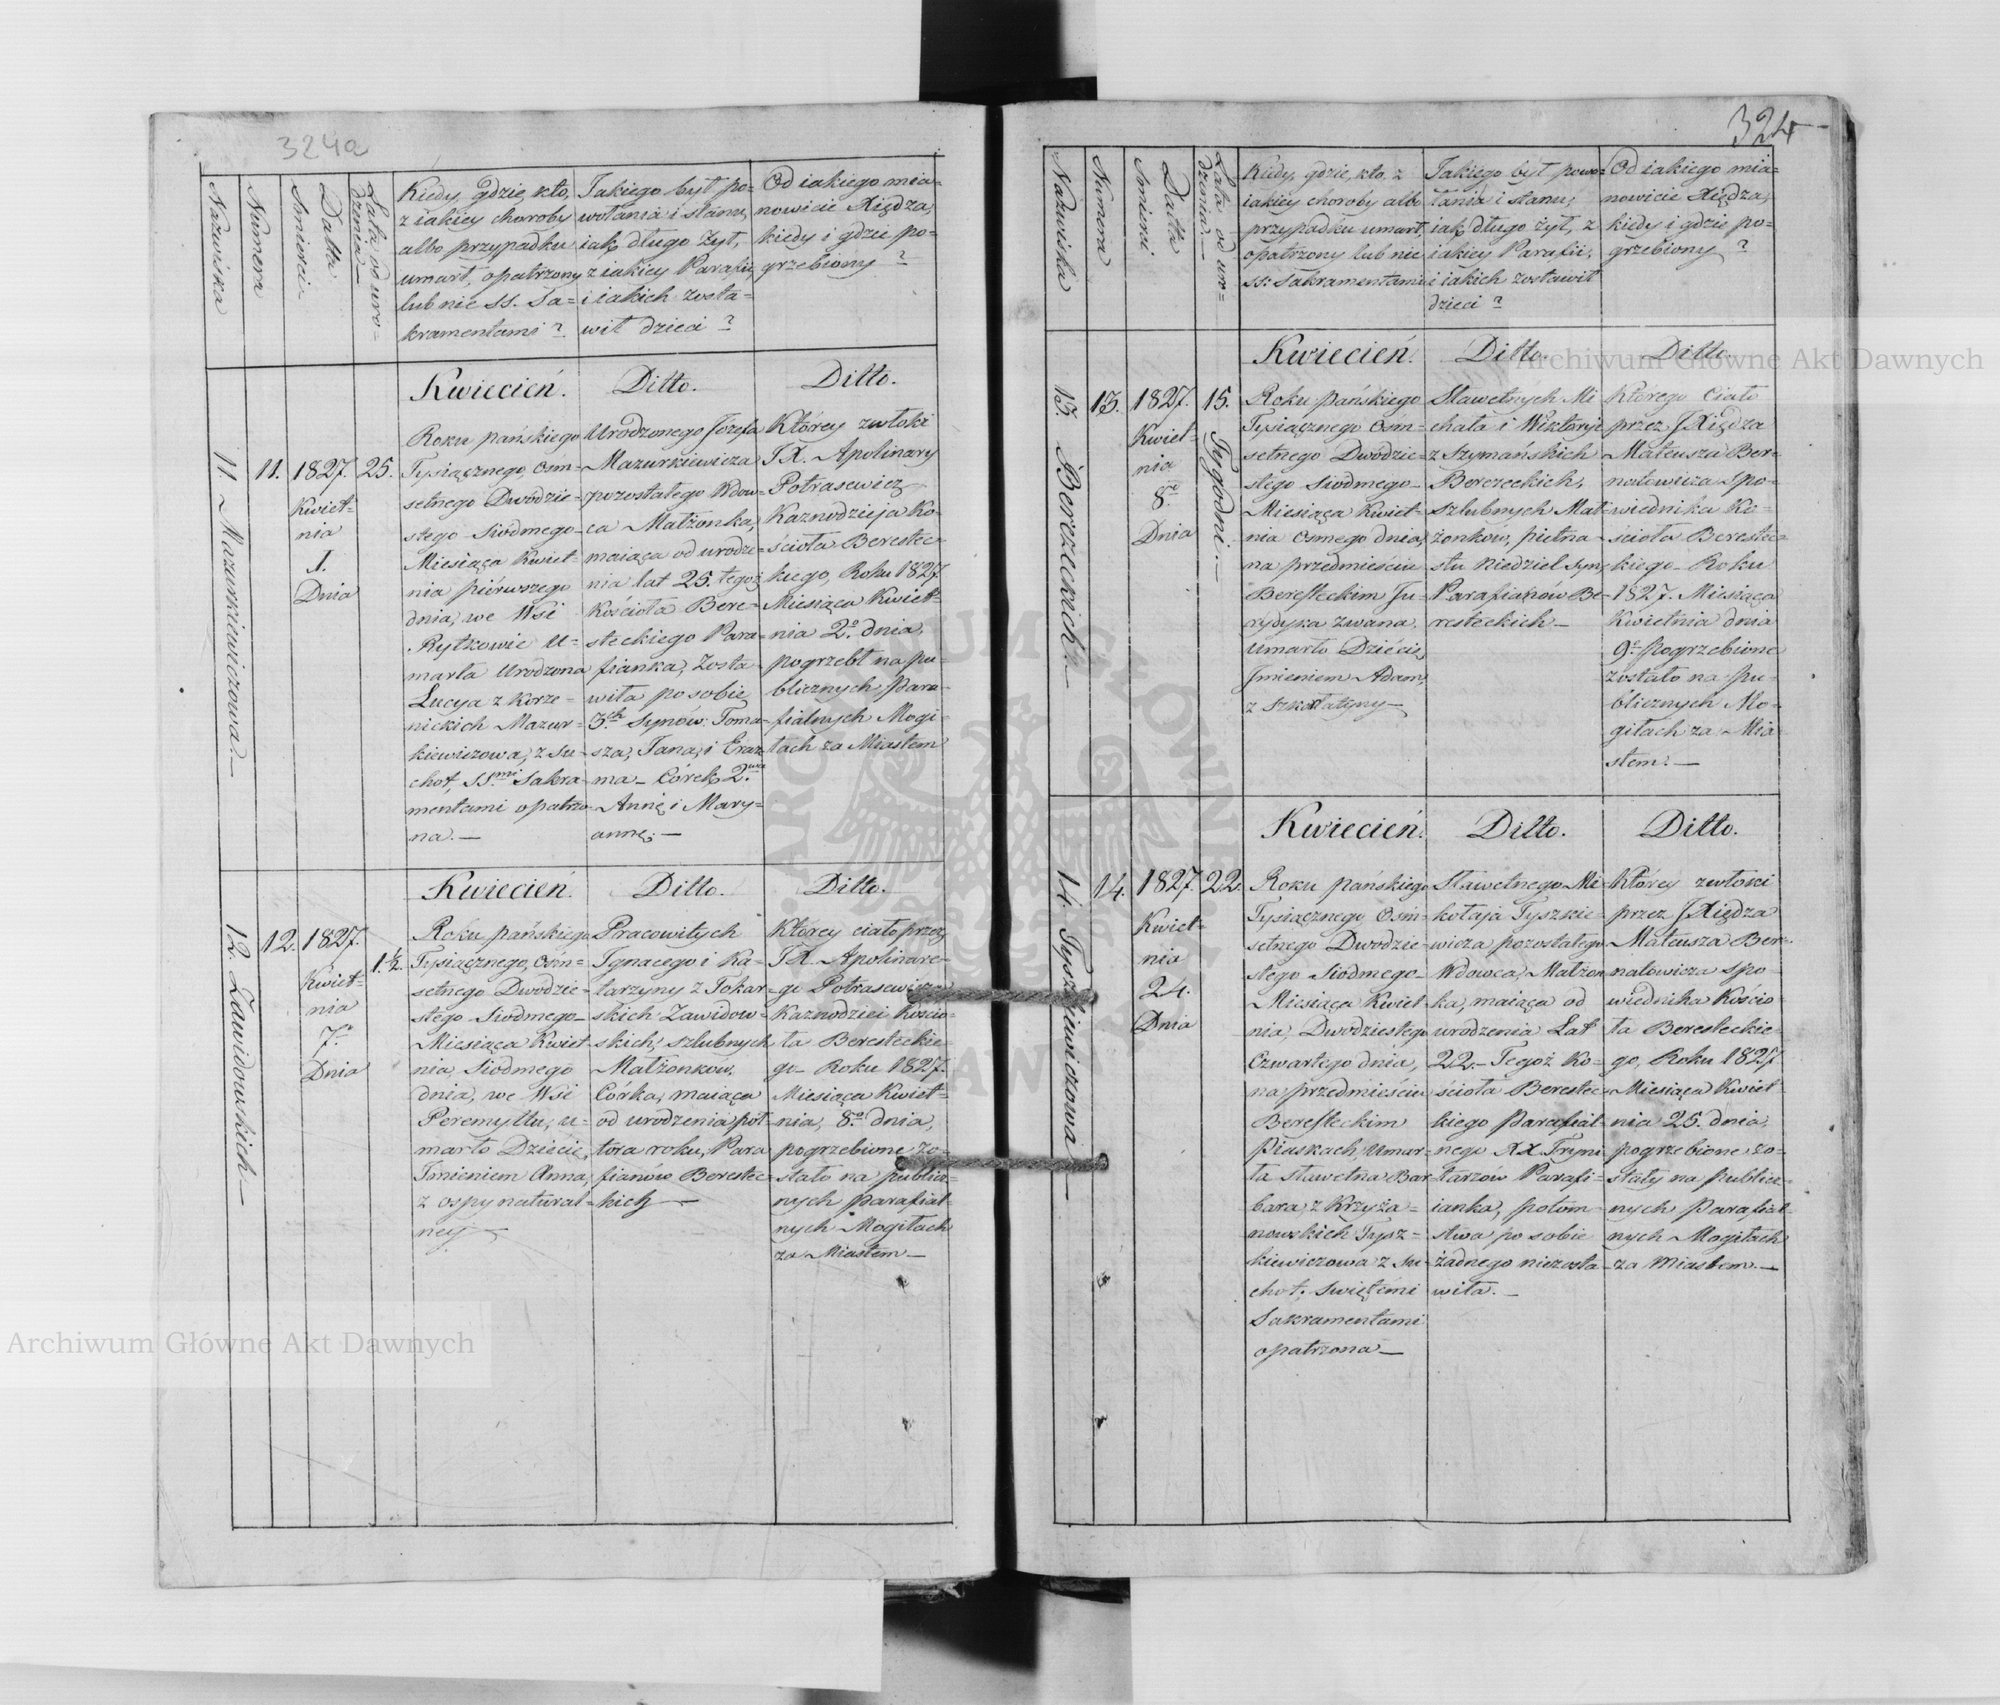 324a
Nazwiska
Numera
Datta
Smierci
Lata od uro=
dzenia
Kiedy, gdzie, kto,
z iakiey choroby
albo przypadku
umarł, opatrzony
lub nie SS. Sa=
kramentami?
Jakiego był po=
wołania i stanu,
iak długo żył,
z iakiey Parafii,
i iakich zosta=
wił dzieci?
Od iakiego mia=
nowicie Xiędza,
kiedy i gdzie po=
grzebiony?
11. Mazurkiewiczowa.—
11.
1827.
Kwiet=
nia
1.
Dnia
25.
Kwiecień.
Roku pańskiego
Tysiącznego, Ośm=
setnego Dwódzie=
stego Siodmego—
Miesiąca Kwiet=
nia piérwszego
dnia, we Wsi
Rytkowie u=
marła Urodzona
Lucya z Korze=
nickich Mazur=
kiewiczowa, z su=
chot, SS.mi Sakra=
mentami opatrzo=
na.—
Ditto.
Urodzonego Józefa
Mazurkiewicza
pozostałego Wdow=
ca Małżonka,
maiąca od urodze=
nia lat 25. tegoż
Kościoła Bere=
steckiego Para=
fianka, Zosta=
wiła po sobie
3ch Synów: Toma=
sza, Jana, i Eraz=
ma— Córek 2.
Annę i Mary=
annę.—
Ditto.
Którey zwłoki
JX. Apolinary
Potrasewicz
Kaznodzieja Ko=
ścioła Berestec=
kiego, Roku 1827.
Miesiąca Kwiet=
nia 2o. dnia,
pogrzebł na pu=
blicznych Para=
fialnych Mogi=
łach za Miastem
12. Zawidowskich—
12.
1827.
Kwiet=
nia
7o
Dnia
1.½.
Kwiecień.
Roku pańskiego
Tysiącznego, Ośm=
setnego Dwódzie=
stego Siodmego—
Miesiąca Kwiet=
nia, Siodmego
dnia, we Wsi
Peremyllu, u=
marło Dziécie,
Jmieniem Anna,
z ospy natural=
ney—
Ditto.
Pracowitych
Jgnacego i Ka=
tarzyny z Tokar=
skich Zawidow=
skich, szlubnych
Małżonków,
Córka, maiąca
od urodzenia pół=
tora roku, Para
fianów Berestec=
kich—
Ditto.
Którey ciało przez
JX. Apolinare=
go Potrasewicza
Kaznodziei Kościo=
ła Beresteckie=
go— Roku 1827.
Miesiąca Kwiet=
nia, 8o. dnia,
pogrzebione zo=
stało na publicz=
nych Parafial=
nych Mogiłach
za Miastem—
324
Nazwiska
Numera
Datta
Smierci
Lata od uro=
dzenia.—
Kiedy, gdzie, kto, z
iakiey choroby albo
przypadku umarł,
opatrzony lub nie
SS. Sakramentami
Jakiego był powo=
łania i stanu,
iak długo żył, z
iakiey Parafii,
i iakich zostawił
dzieci?
Od iakiego mia=
nowicie Xiędza,
kiedy i gdzie po=
grzebiony?
13. Berezeckich.—
13.
1827.
Kwiet=
nia
8.
Dnia
15. Tygodni.—
Kwiecień.
Roku pańskiego
Tysiącznego Ośm=
setnego Dwódzie=
stego Siodmego—
Miesiąca Kwiet=
nia Osmego dnia,
na przedmieściu
Beresteckim Ju=
rydyka zwana,
umarło Dziécie,
Jmieniem Adam,
z Szkarlatyny—
Ditto.
Sławetnych Mi
chała i Wiktoryi
z Szymańskich
Berezeckich,
Szlubnych Mał=
żonków, pietna=
stu Niedziel Syn,
Parafianów Be=
resteckich—
Ditto.
Którego Ciało
przez JXiędza
Mateusza Ber=
natowicza Spo=
wiednika Ko=
ścioła Berestec=
kiego— Roku
1827. Miesiąca
Kwietnia dnia
9o pogrzebione
zostało na Pu=
blicznych Mo=
giłach za Mia=
stem.—
14. Tyszkiewiczowa—
14.
1827.
Kwiet=
nia
24.
Dnia
22.
Kwiecień.
Roku pańskiego
Tysiącznego, Ośm=
setnego Dwódzie=
stego Siodmego—
Miesiąca Kwiet=
nia, Dwódziestego
Czwartego dnia,
na przedmieściu
Beresteckim
Piaskach, Umar=
ła Sławetna Bar=
bara, z Krzyża=
nowskich Tysz=
kiewiczowa z su=
chot, Swiętémi
Sakramentami
opatrzona—
Ditto.
Sławetnego Mi=
kołaja Tyszkie=
wicza pozostałego
Wdowca, Małżon
ka, maiąca od
urodzenia Lat
22.— Tegoż Ko=
ścioła Berestec=
kiego Parafial=
nego XX. Tryni
tarzów Parafi=
ianka, potom=
stwa po sobie
żadnego niezosta=
wiła.—
Ditto.
Którey zwłoki
przez JXiędza
Mateusza Ber=
natowicza Spo=
wiednika Kościo=
ła Beresteckie=
go, Roku 1827
Miesiąca Kwiet=
nia 25. dnia,
pogrzebione zo=
stały na Publicz=
nych Parafial=
nych Mogiłach
za Miastem.—
Archiwum Główne Akt Dawnych
Archiwum Główne Akt Dawnych